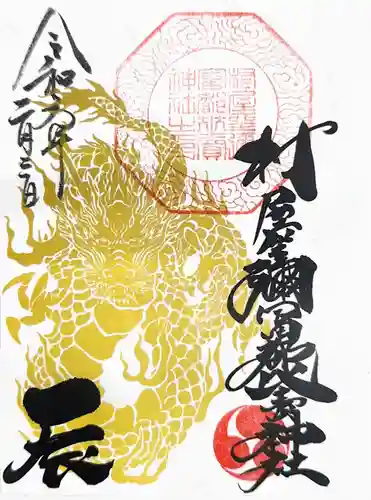 村屋坐彌冨都比賣神社
村屋坐彌
冨都比賣
神社之印
令和六年
二月二日
辰